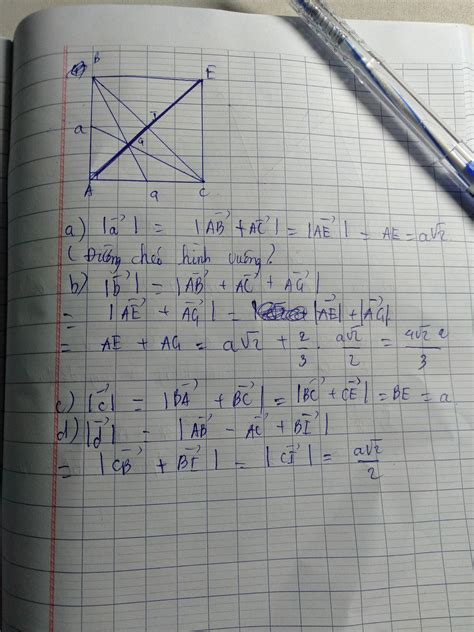 B E
a I
G
A a C
a) |a⃗| = |AB⃗ + AC⃗| = |AE⃗| = AE = a√2
(Đường chéo hình vuông)
b) |b⃗| = |AB⃗ + AC⃗ + AG⃗|
= |AE⃗ + AG⃗| = |AE⃗| + |AG⃗|
= AE + AG = a√2 + 2/3 . a√2/2 = 4√2 a/3
c) |c⃗| = |BA⃗ + BC⃗| = |BC⃗ + CE⃗| = BE = a
d) |d⃗| = |AB⃗ - AC⃗ + BI⃗|
= |CB⃗ + BI⃗| = |CI⃗| = a√2/2